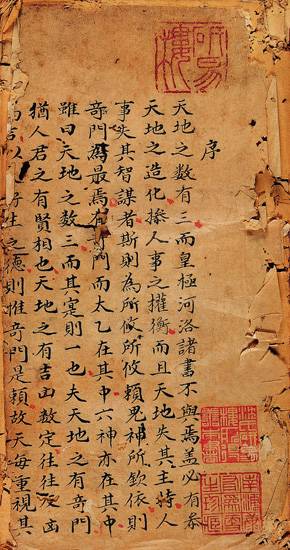 序
天地之数有三而皇極河洛諸書不與焉盖必有奪
天地之造化搀人事之權衡而且天地失其主持人
事失其智謀者斯則為所倣所攸頼鬼神所欽依則
奇門為最焉在奇門而太乙在其中六神亦在其中
雖曰天地之数三而其寔則一也夫天地之有奇門
猶人君之有賢相也天地之有吉凶数定往往反凶
為吉以生之德則惟奇門是頼故天每重視其